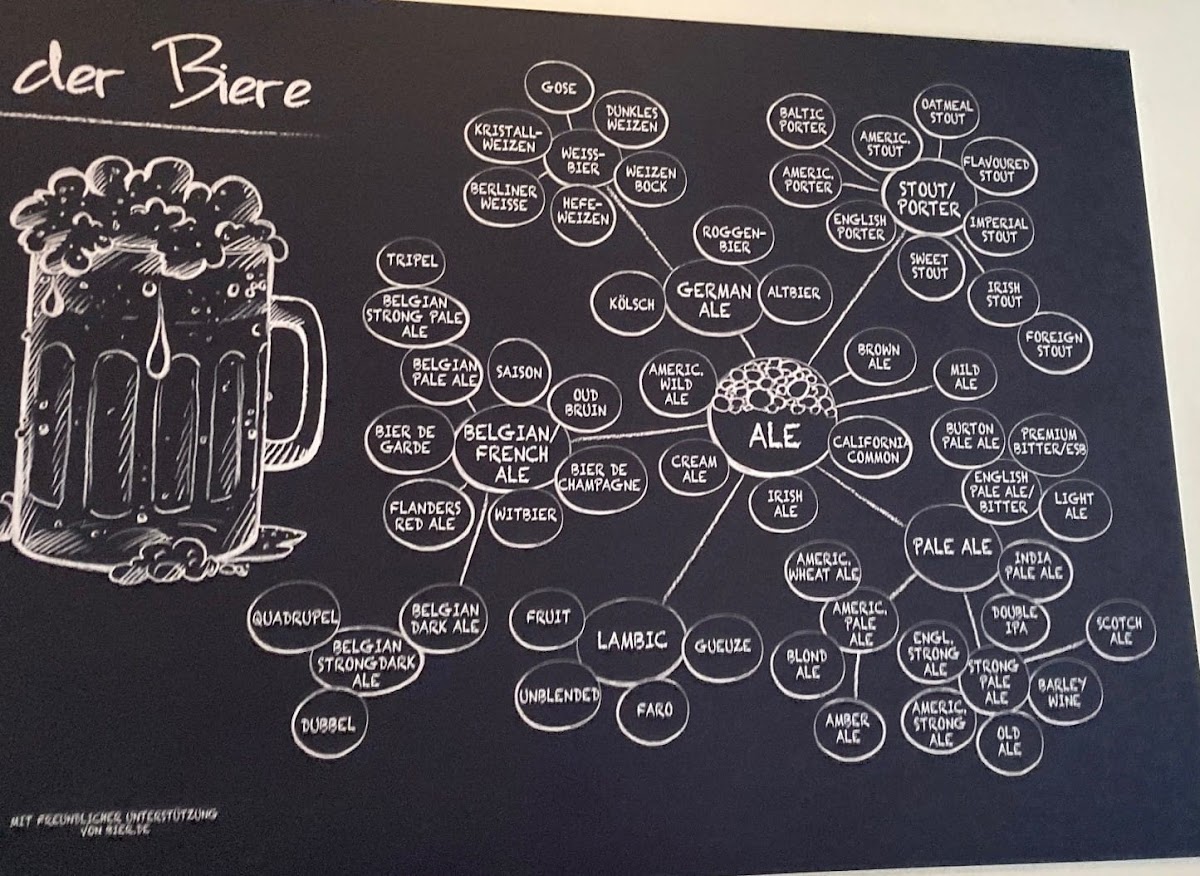 der Biere
GOSE
DUNKLES
WEIZEN
KRISTALL-
WEIZEN
WEISS-
BIER
WEIZEN
BOCK
BERLINER
WEISSE
HEFE-
WEIZEN
ROGGEN-
BIER
KÖLSCH
GERMAN
ALE
ALTBIER
BALTIC
PORTER
AMERIC.
STOUT
OATMEAL
STOUT
FLAVOURED
STOUT
AMERIC.
PORTER
STOUT/
PORTER
ENGLISH
PORTER
IMPERIAL
STOUT
SWEET
STOUT
IRISH
STOUT
FOREIGN
STOUT
TRIPEL
BELGIAN
STRONG PALE
ALE
BELGIAN
PALE ALE
SAISON
OUD
BRUIN
BIER DE
GARDE
BELGIAN/
FRENCH
ALE
BIER DE
CHAMPAGNE
FLANDERS
RED ALE
WITBIER
AMERIC.
WILD
ALE
BROWN
ALE
MILD
ALE
ALE
CALIFORNIA
COMMON
CREAM
ALE
IRISH
ALE
BURTON
PALE ALE
PREMIUM
BITTER/ESB
ENGLISH
PALE ALE/
BITTER
LIGHT
ALE
PALE ALE
INDIA
PALE ALE
DOUBLE
IPA
AMERIC.
WHEAT ALE
AMERIC.
PALE
ALE
BLOND
ALE
AMBER
ALE
ENGL.
STRONG
ALE
STRONG
PALE
ALE
SCOTCH
ALE
BARLEY
WINE
AMERIC.
STRONG
ALE
OLD
ALE
QUADRUPEL
BELGIAN
DARK ALE
BELGIAN
STRONGDARK
ALE
DUBBEL
FRUIT
LAMBIC
GUEUZE
UNBLENDED
FARO
MIT FREUNDLICHER UNTERSTÜTZUNG
VON BIER.DE